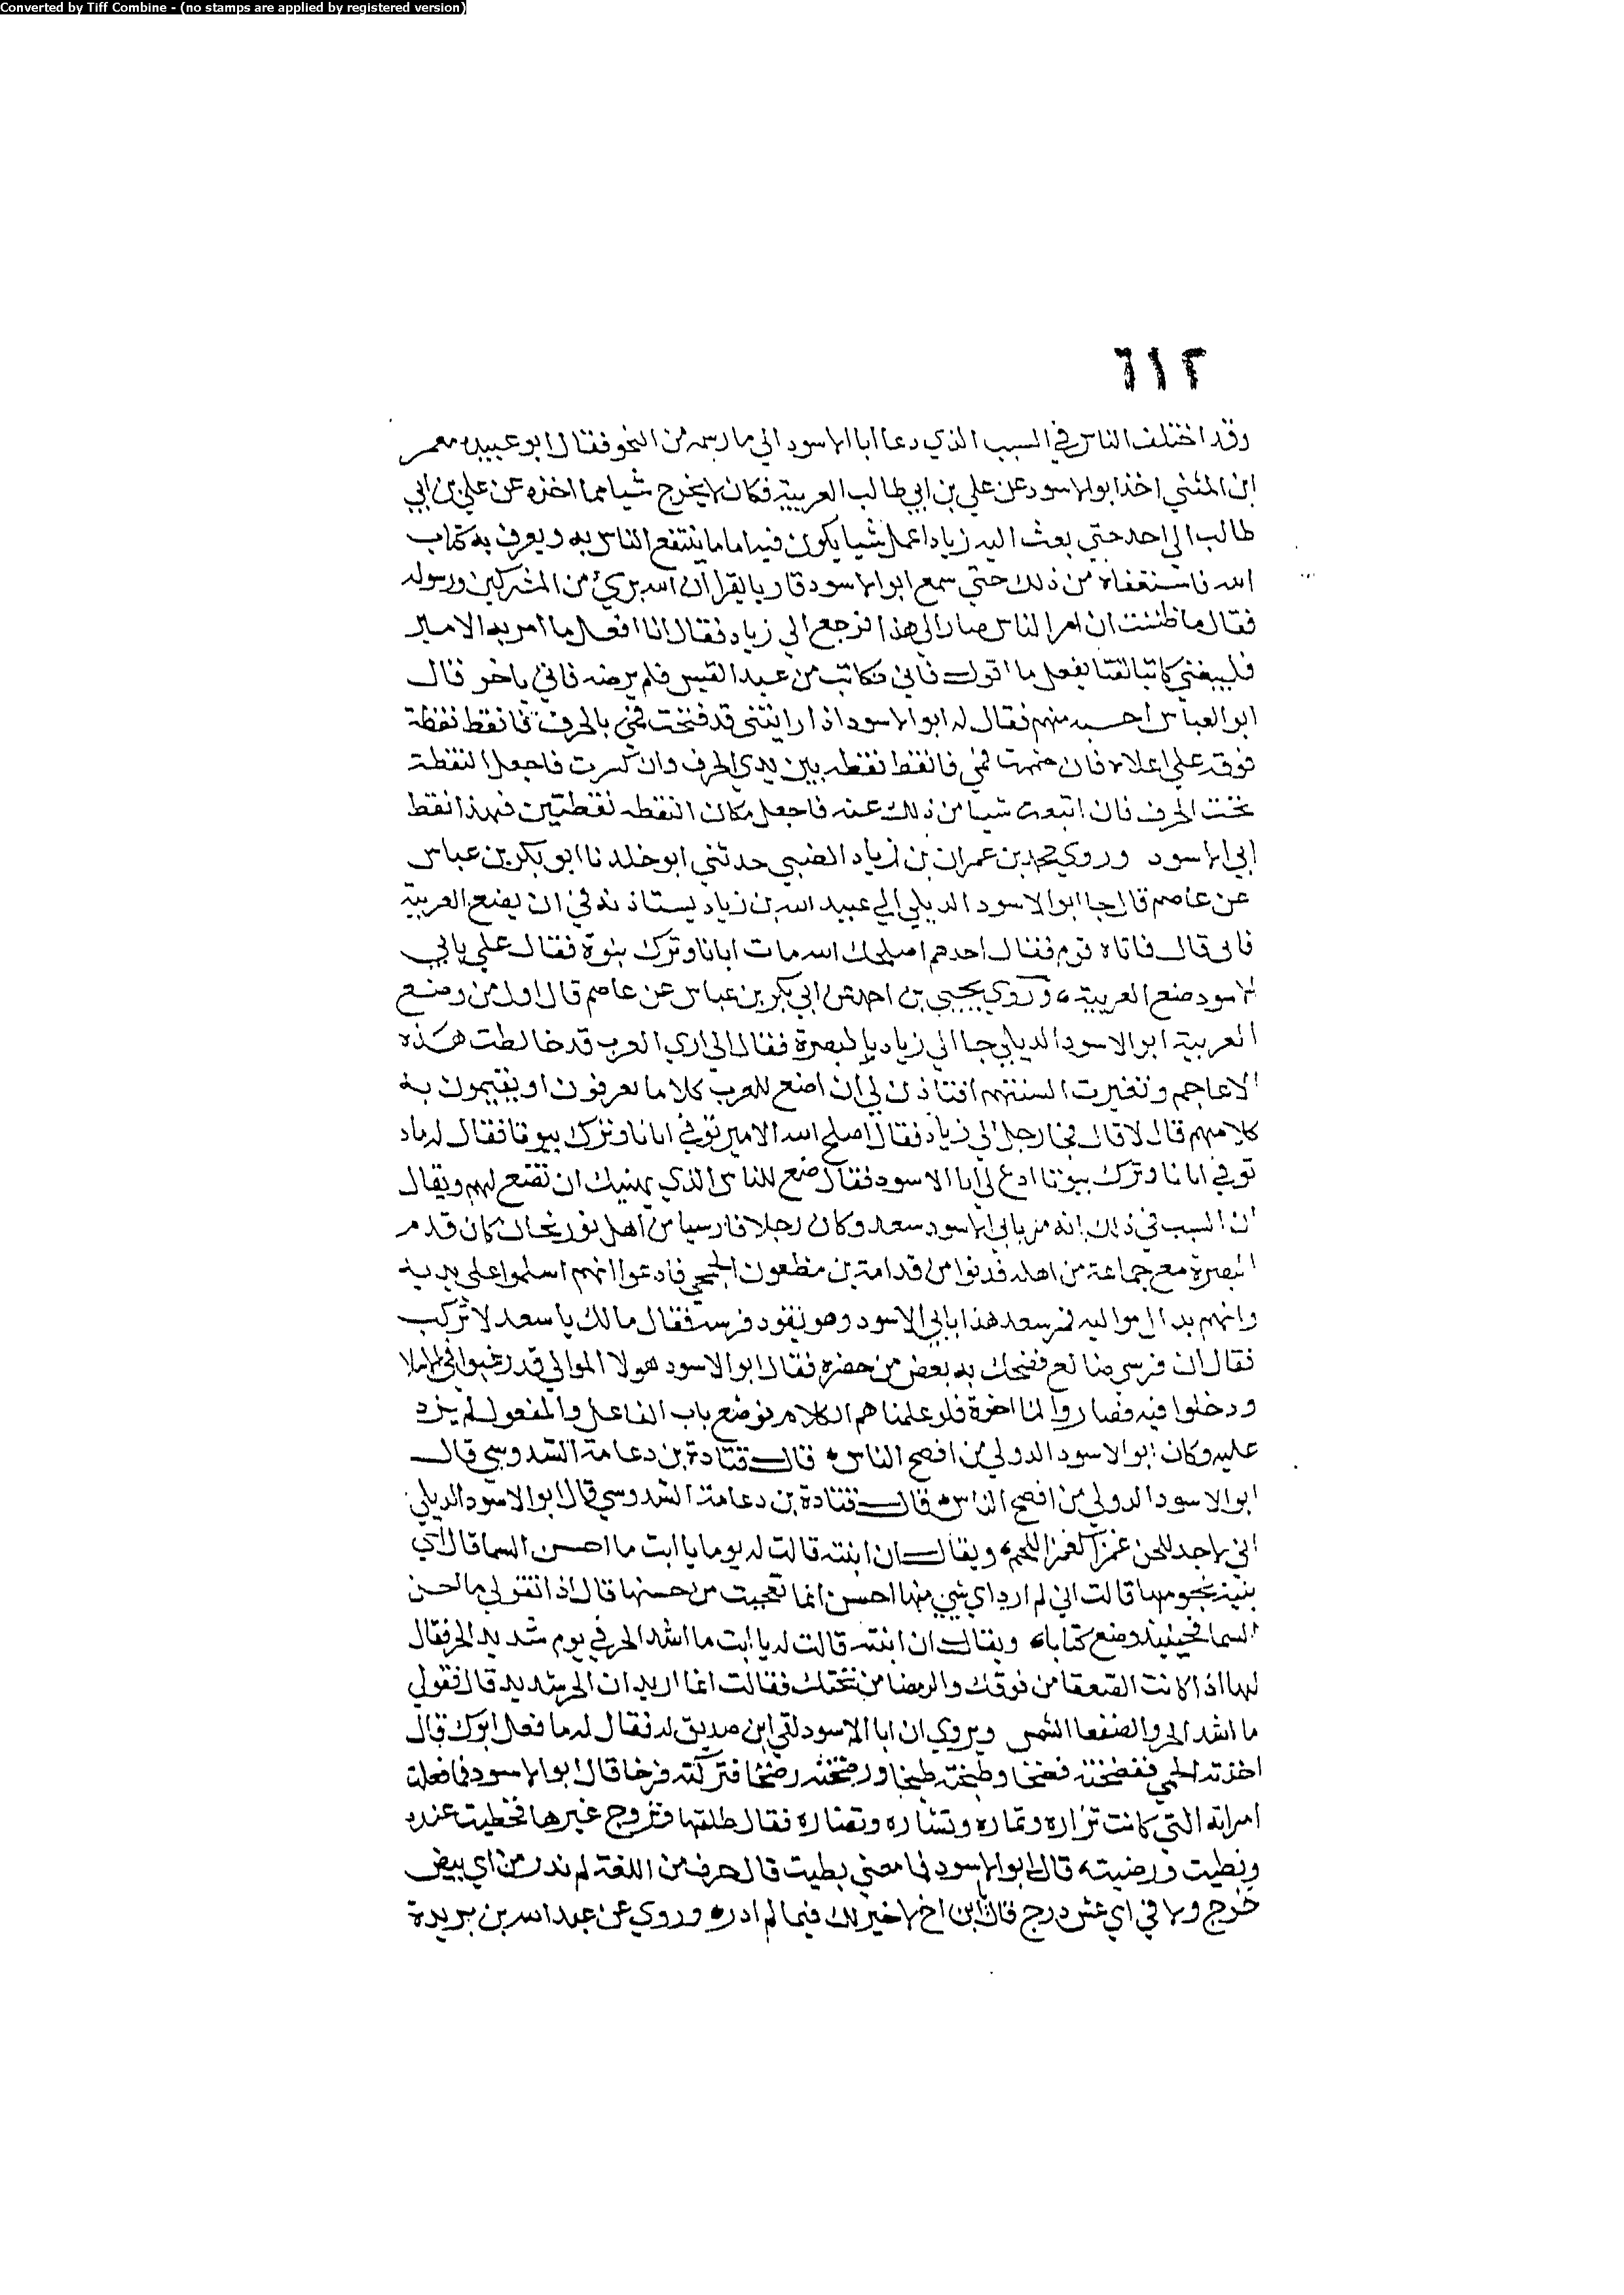 Converted by Tiff Combine - (no stamps are applied by registered version)
٦١٢
وقد اختلف الناس في السبب الذي دعا ابا الاسود الي ما رسمه من النحو فقال ابو عبيده معمر
ابن المثني اخذ ابو الاسود عن علي بن ابي طالب العربية فكان لا يخرج شيا مما اخذه عن علي بن ابي
طالب الي احد حتي بعث اليه زياد اعمل شيا يكون فيه اماما ينتفع الناس به ويعرف به كتاب
الله فاستعفاه من ذلك حتي سمع ابو الاسود قاريا يقرا ان الله بري من المشركين ورسوله
فقال ما ظننت ان امر الناس صار الي هذا فرجع الي زياد فقال انا افعل ما امر به الامير
فليبغني كاتبا لقنا يفعل ما اقول فاني فكاتب من عبد القيس فلم يرضه فاتي باخر قال
ابو العباس احسبه منهم فقال له ابو الاسود اذا رايتني قد فتحت فمي بالحرف فانقط نقطة
فوقه علي اعلاه فان ضممت فمي فانقط نقطه بين يدي الحرف وان كسرت فاجعل النقطة
تحت الحرف فان اتبعت شيا من ذلك غنه فاجعل مكان النقطه نقطتين فهذا نقط
ابي الاسود وروي محمد بن عمران بن زياد الضبي حدثني ابو خلد نا ابو بكر بن عباس
عن عاصم قال جا ابو الاسود الديلي الي عبيد الله بن زياد يستاذنه في ان يضع العربية
فابي قال فاتاه قوم فقال احدهم اصلحك الله مات ابانا وترك بنوة فقال علي بابي
لاسود ضع العربية وروي يحيي بن احمد عن ابي بكر بن عباس عن عاصم قال اول من وضع
العربية ابو الاسود الديلي جا الي زياد بالبصرة فقال اني اري العرب قد خالطت هذه
الاعاجم وتغيرت السنتهم افتاذن لي ان اضع للعرب كلاما يعرفون او يقيمون به
كلامهم قال لا قال فجا رجل الي زياد فقال اصلح الله الامير توفي ابانا وترك بنونا فقال له زياد
توفي ابانا وترك بنونا ادع لي ابا الاسود فقال ضع للناس الذي نهيتك ان تضع لهم ويقال
ان السبب في ذلك انه مر بابي الاسود سعد وكان رجلا فارسيا من اهل نوزنجان كان قدم
البصرة مع جماعة من اهله فدنوا من قدامة بن مظعون الجمحي فادعوا انهم اسلموا علي يديه
وانهم بذاك مواليه فمر سعد هذا بابي الاسود وهو يقود فرسه فقال مالك يا سعد لا تركب
فقال ان فرسي ضالع فضحك به بعض من حضره فقال ابو الاسود هولا الموالي قد رغبوا في الاسلا
ودخلوا فيه فصاروا لنا اخوة فلو علمناهم الكلام فوضع باب الفاعل والمفعول لم يزد
عليه وكان ابو الاسود الدولي من افصح الناس قال قتادة بن دعامة السدوسي قال
ابو الاسود الدولي من افصح الناس قال قتادة بن دعامة السدوسي قال ابو الاسود الديلي
اني لاجد للحن غمزا كغمز اللحم ويقال ان ابنته قالت له يوما يا ابت ما احسن السما قال اي
بنية نجومها قالت اني لم ارد اي شي منها احسن انما تعجبت من حسنها قال اذا فقولي ما احسن
السما فحينيذ وضع كتابا ويقال ان ابنته قالت له يا ابت ما اشد الحر في يوم شديد الحر فقال
لها اذا كانت الصقعا من فوقك والرمضا من تحتك فقالت انما اريد ان الحر شديد قال فقولي
ما اشد الحر والصقعا الشمس ويروي ان ابا الاسود لقي ابن صديق له فقال له ما فعل ابوك قال
اخذته الحمي ففضخته فضخا وطبخته طبخا ورضخته رضخا فتركته فرخا قال ابو الاسود فما فعلت
امراته التي كانت تزاره وتماره وتشاره وتضاره فقال طلقها فتزوج غيرها فحظيت عنده
وبظيت ورضيت قال ابو الاسود فما معني بظيت قال حرف من اللغة لم ندر من اي بيض
خرج ولا في اي عش درج قال يا ابن اخ لا خير لك فيما لم ادر وروي عن عبد الله بن بريدة